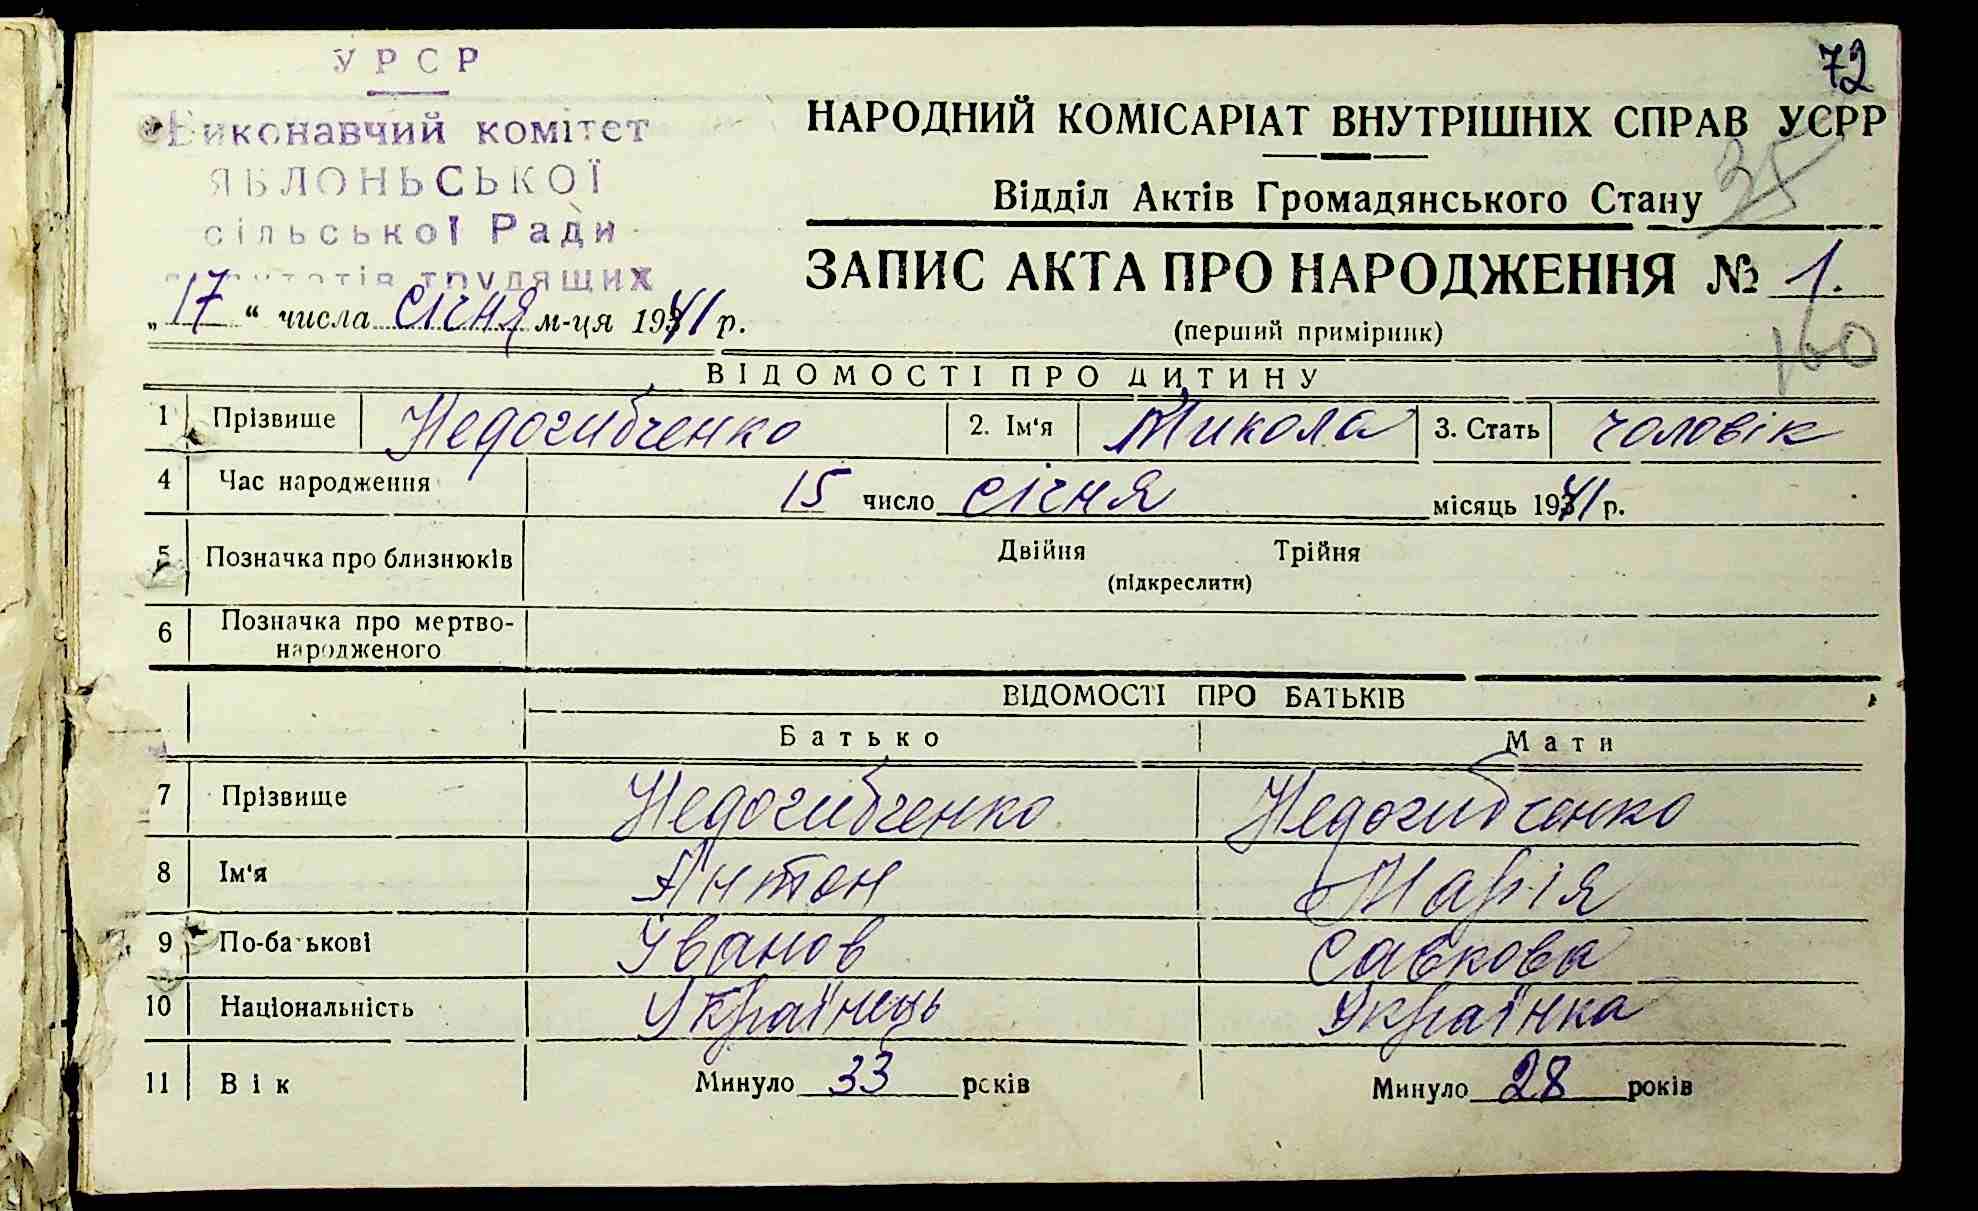 72
УРСР
Виконавчий комітет
ЯБЛОНЬСЬКОЇ
сільської Ради
трудящих
„17“ числа січня м-ця 1941 р.
НАРОДНИЙ КОМІСАРІАТ ВНУТРІШНІХ СПРАВ УСРР
38
Відділ Актів Громадянського Стану
ЗАПИС АКТА ПРО НАРОДЖЕННЯ № 1.
(перший примірник)
160
ВІДОМОСТІ ПРО ДИТИНУ
1 Прізвище Недогибченко 2. Ім'я Микола 3. Стать чоловік
4 Час народження 15 число січня місяць 1941 р.
5 Позначка про близнюків Двійня Трійня
(підкреслити)
6 Позначка про мертво-
народженого
ВІДОМОСТІ ПРО БАТЬКІВ
Батько Мати
7 Прізвище Недогибченко Недогибченко
8 Ім'я Антон Марія
9 По-батькові Іванов Савкова
10 Національність Українець Українка
11 Вік Минуло 33 років Минуло 28 років